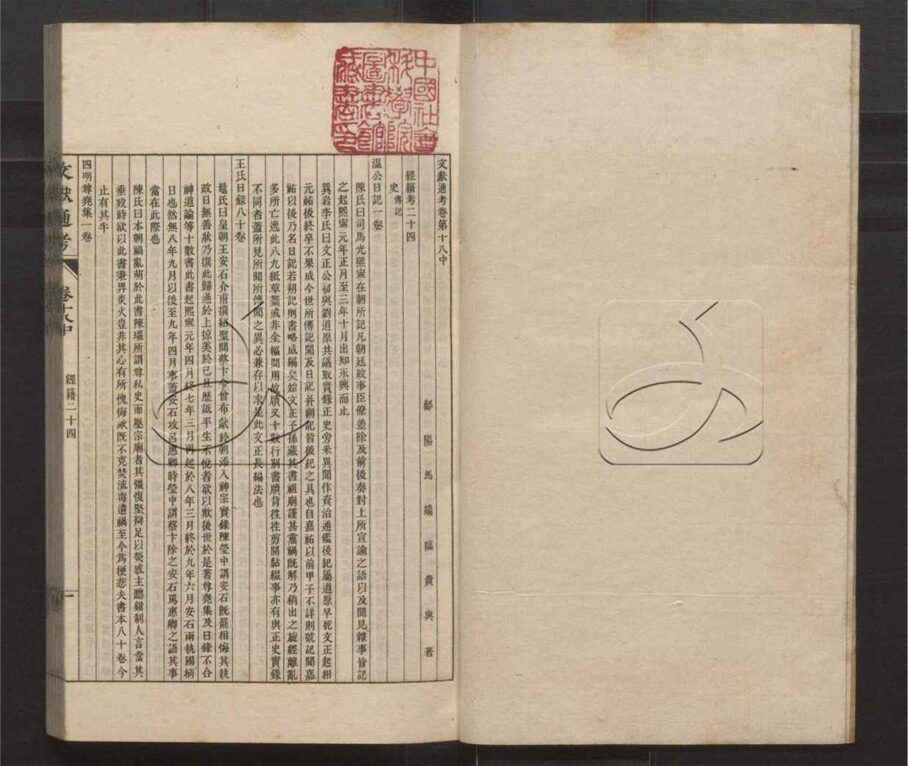 文獻通考卷第十八中
鄱陽馬端臨貴與著
經籍考二十四
史傳記
溫公日記一卷
陳氏曰司馬光熙寧在朝所記凡朝廷政事臣僚差除及前後奏對上所宣諭之語以及聞見雜事皆記
之起熙寧元年正月至三年十月出知永興而止
巽岩李氏曰文正公初與劉道原共議取實錄正史旁采異聞作資治通鑑後紀屬道原早死文正起相
元祐後終卒不果成今世所傳記聞及日記并朔記皆後紀之具也自嘉祐以前甲子不詳則號記聞嘉
祐以後乃名日記若朔記則書略成編矣始文正子孫藏其書祖廟謹甚黨禍既解乃稍出之旋經離亂
多所亡逸此八九紙草藁或非全幅間用故牘又十數行別書牘背往往剪開黏綴事亦有與正史實錄
不同者蓋所見所聞所傳聞之異必兼存以求是此文正長編法也
王氏日錄八十卷
鼂氏曰皇朝王安石介甫撰紹聖間蔡卞合曾布獻於朝添入神宗實錄陳瑩中謂安石既罷相悔其執
政日無善狀乃撰此歸過於上掠美於己且歷詆平生不悅者欲以欺後世於是著尊堯集及日錄不合
神道論等十數書此書起熙寧元年四月終七年三月再起於八年三月終於九年六月安石兩執國柄
日也然無八年九月以後至九年四月事蓋安石攻呂惠卿時瑩中謂蔡卞除之安石罵惠卿之語其事
當在此際也
陳氏曰本朝禍亂萌於此書陳瓘所謂尊私史而壓宗廟者其彊愎堅辯足以熒惑主聽鉗制人言當其
垂歿時欲以此書秉畀炎火豈非其心有所愧悔歟既不克焚流毒遺禍至今為梗悲夫書本八十卷今
止有其半
四明尊堯集一卷
文獻通考
卷十八中
經籍二十四
一
中國社會
科學院
圖書館
藏書印